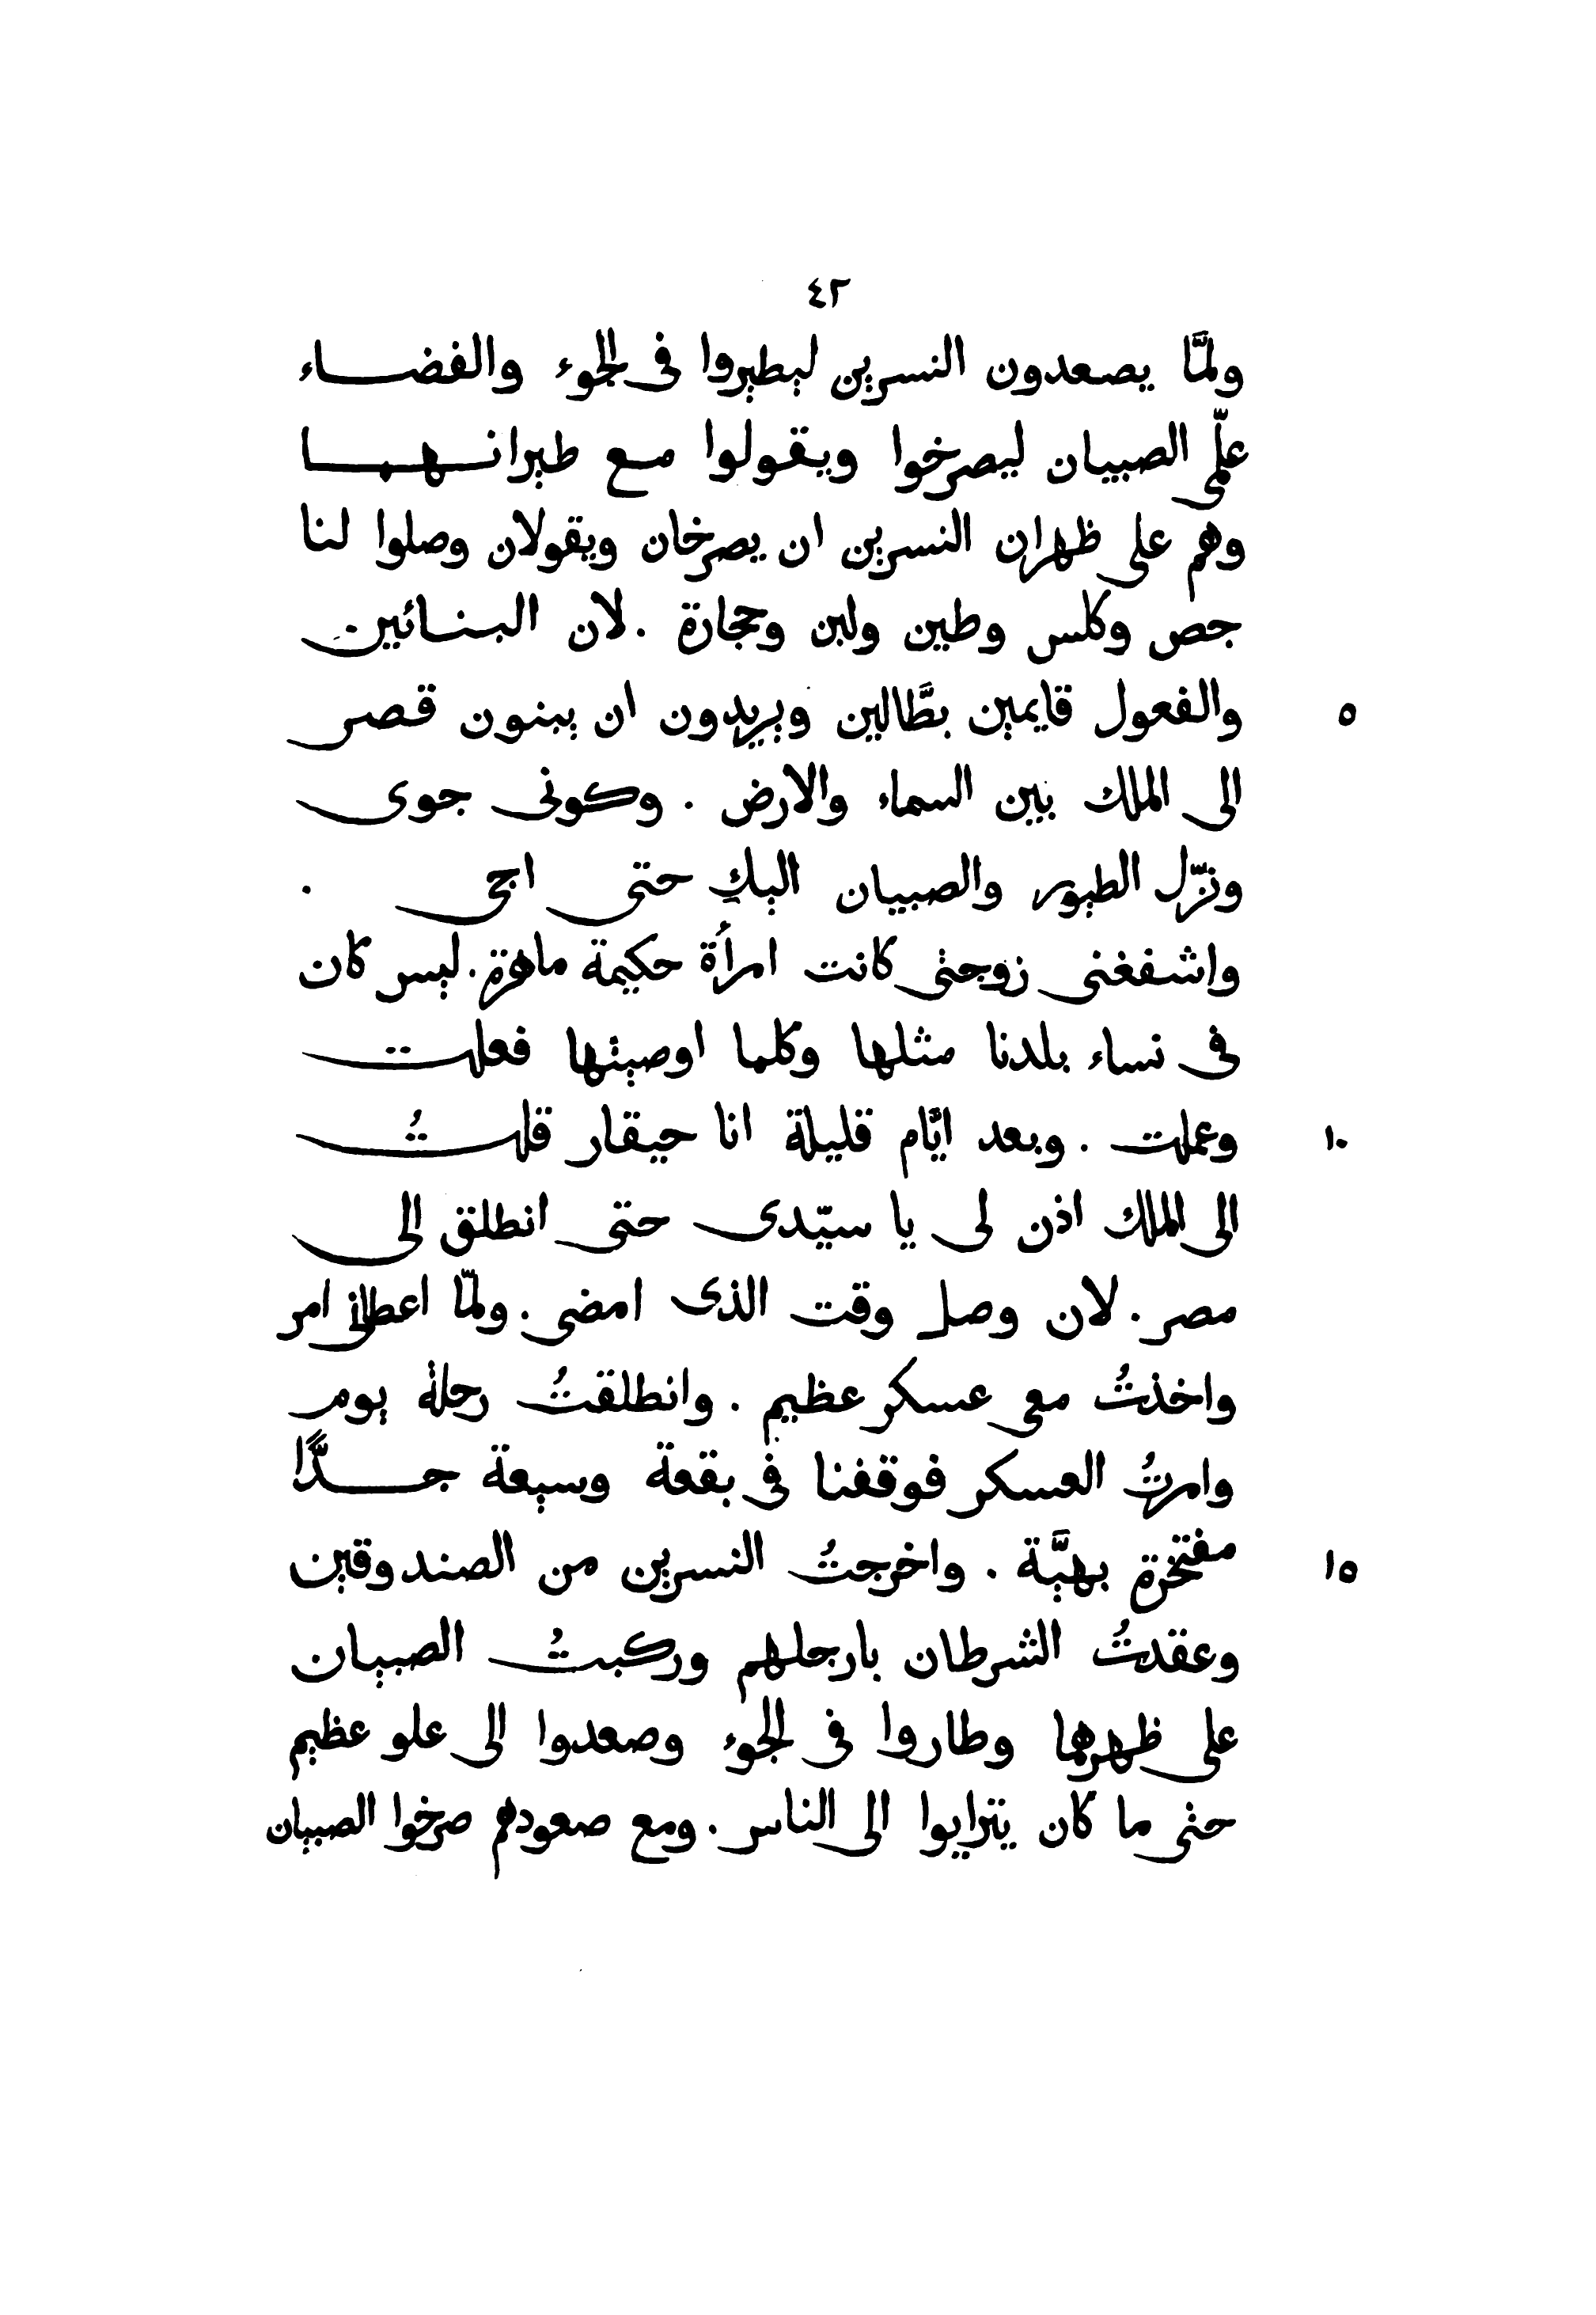 ٤٢
ولمَّا يصعدون النسرين ليطيروا فى الجوء والفضاء
علّمى الصبيان ليصرخوا ويقولوا مع طيرانهما
وهم على ظهران النسرين ان يصرخان ويقولان وصلوا لنا
جص وكلس وطين ولبن وحجارة . لان البنائين
والفعول قايمين بطَّالين ويريدون ان يبنون قصر
٥
الى الملك بين السماء والارض . وكونى جوى
ونزّل الطيور والصبيان اليكِ حتى اجى .
واشفغنى زوجتى كانت امرأة حكيمة ماهرة . ليس كان
فى نساء بلدنا مثلها وكلما اوصيتها فعلت
وعملت . وبعد ايَّام قليلة انا حيقار قلتُ
١٠
الى الملك اذن لى يا سيّدى حتى انطلق الى
مصر . لان وصل وقت الذى امضى . ولمّا اعطانى امر
واخذتُ معى عسكر عظيم . وانطلقتُ رحلة يوم
وامرتُ العسكر فوقفنا فى بقعة وسيعة جدًّا
مفتخرة بهيَّة . واخرجتُ النسرين من الصندوقين
١٥
وعقدتُ الشرطان بارجلهم وركبتُ الصبيان
على ظهرهما وطاروا فى الجوء وصعدوا الى علو عظيم
حتى ما كان يترايوا الى الناس . ومع صعودهم صرخوا الصبيان